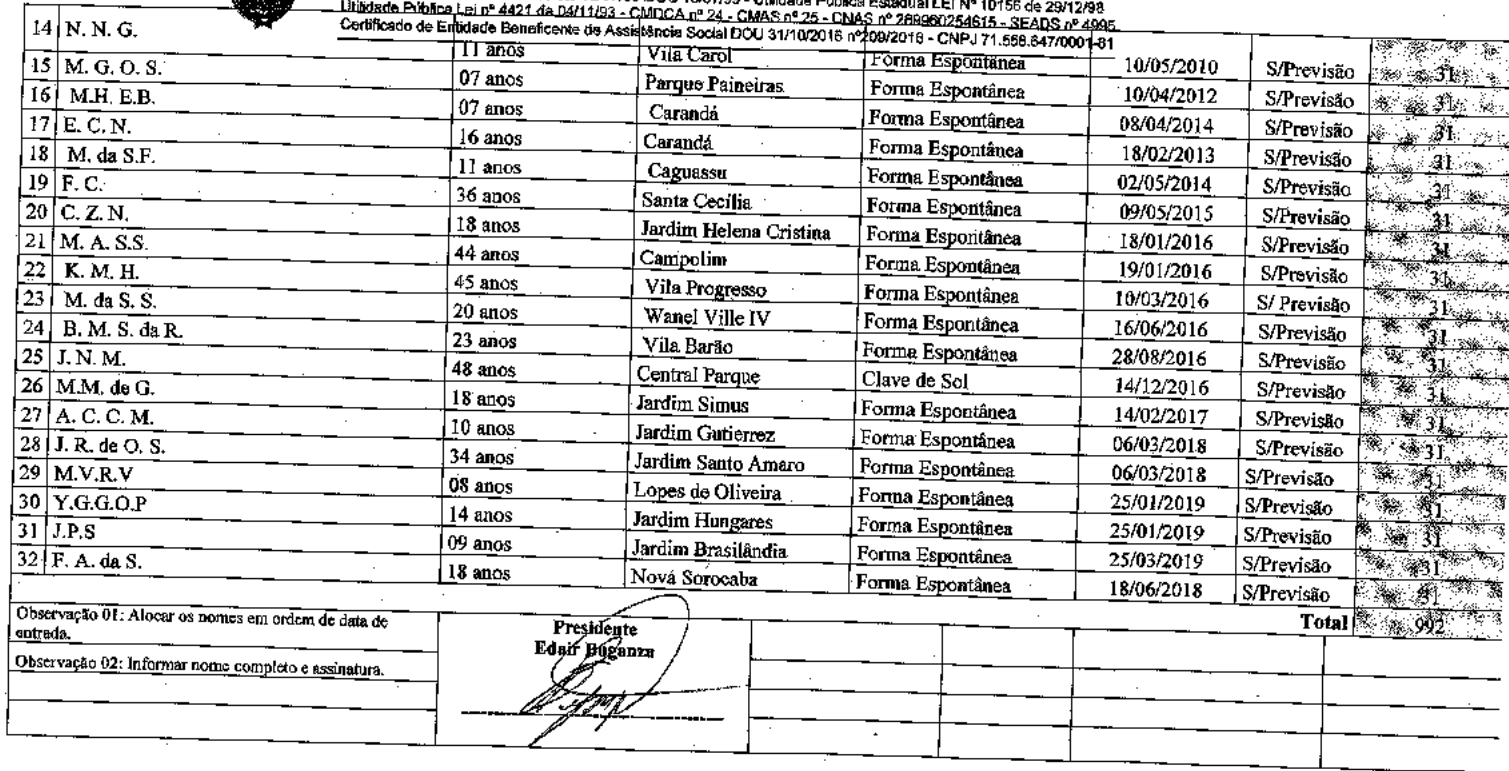 Utilidade Pública Estadual LEI Nº 10156 de 29/12/98
Utilidade Pública Lei nº 4421 da 04/11/93 - CMDCA nº 24 - CMAS nº 25 - CNAS nº 269960254615 - SEADS nº 4995
Certificado de Entidade Beneficente de Assistência Social DOU 31/10/2016 nº209/2016 - CNPJ 71.558.647/0001-81
14 N. N. G. 11 anos Vila Carol Forma Espontânea 10/05/2010 S/Previsão 31
15 M. G. O. S. 07 anos Parque Paineiras Forma Espontânea 10/04/2012 S/Previsão 31
16 M.H. E.B. 07 anos Carandá Forma Espontânea 08/04/2014 S/Previsão 31
17 E. C. N. 16 anos Carandá Forma Espontânea 18/02/2013 S/Previsão 31
18 M. da S.F. 11 anos Caguassu Forma Espontânea 02/05/2014 S/Previsão 31
19 F. C. 36 anos Santa Cecília Forma Espontânea 09/05/2015 S/Previsão 31
20 C. Z. N. 18 anos Jardim Helena Cristina Forma Espontânea 18/01/2016 S/Previsão 31
21 M. A. S.S. 44 anos Campolim Forma Espontânea 19/01/2016 S/Previsão 31
22 K. M. H. 45 anos Vila Progresso Forma Espontânea 10/03/2016 S/ Previsão 31
23 M. da S. S. 20 anos Wanel Ville IV Forma Espontânea 16/06/2016 S/Previsão 31
24 B. M. S. da R. 23 anos Vila Barão Forma Espontânea 28/08/2016 S/Previsão 31
25 J. N. M. 48 anos Central Parque Clave de Sol 14/12/2016 S/Previsão 31
26 M.M. de G. 18 anos Jardim Simus Forma Espontânea 14/02/2017 S/Previsão 31
27 A. C. C. M. 10 anos Jardim Gutierrez Forma Espontânea 06/03/2018 S/Previsão 31
28 J. R. de O. S. 34 anos Jardim Santo Amaro Forma Espontânea 06/03/2018 S/Previsão 31
29 M.V.R.V 08 anos Lopes de Oliveira Forma Espontânea 25/01/2019 S/Previsão 31
30 Y.G.G.O.P 14 anos Jardim Hungares Forma Espontânea 25/01/2019 S/Previsão 31
31 J.P.S 09 anos Jardim Brasilândia Forma Espontânea 25/03/2019 S/Previsão 31
32 F. A. da S. 18 anos Nová Sorocaba Forma Espontânea 18/06/2018 S/Previsão 31
Total 992
Observação 01: Alocar os nomes em ordem de data de
entrada.
Observação 02: Informar nome completo e assinatura.
Presidente
Edair Buganza